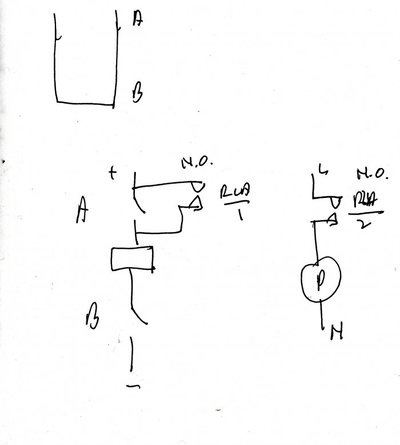 A
B
+
N.O.
A
RLA/1
B
–
L
N.O.
RLA/2
P
N